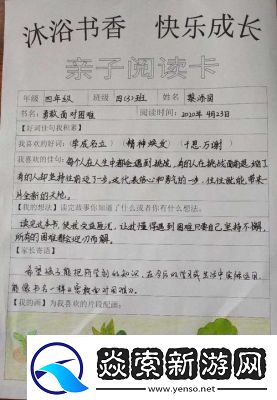 沐浴书香 快乐成长
亲子阅读卡
年级 四年级 班级 四(3)班 姓名
书名: 勇敢面对困难 阅读时间: 2020年4月23日
【好词佳句我积累】
我喜欢的好词: (学成名立) (精神焕发) (千恩万谢)
我喜欢的佳句: 每个人在人生中都会遇到挑战,有的人在挑战面前退缩了
有的人却坚持往前迈了一步。这代表信心和勇气的一步,往往就能带来
片全新的天地。
【我的想法】读完故事你知道了什么或者你有什么想法。
读完这本书,使我受益匪浅,让我懂得遇到困难只要自己坚持不懈,
所有的困难都会迎刃而解。
【家长寄语】
希望孩子能把所学到的知识,在今后的学习或生活中实际运用,
能像书名一样《勇敢面对困难》。
【我的画】为我喜欢的片段配画:
焱索新游网
www.yenso.net